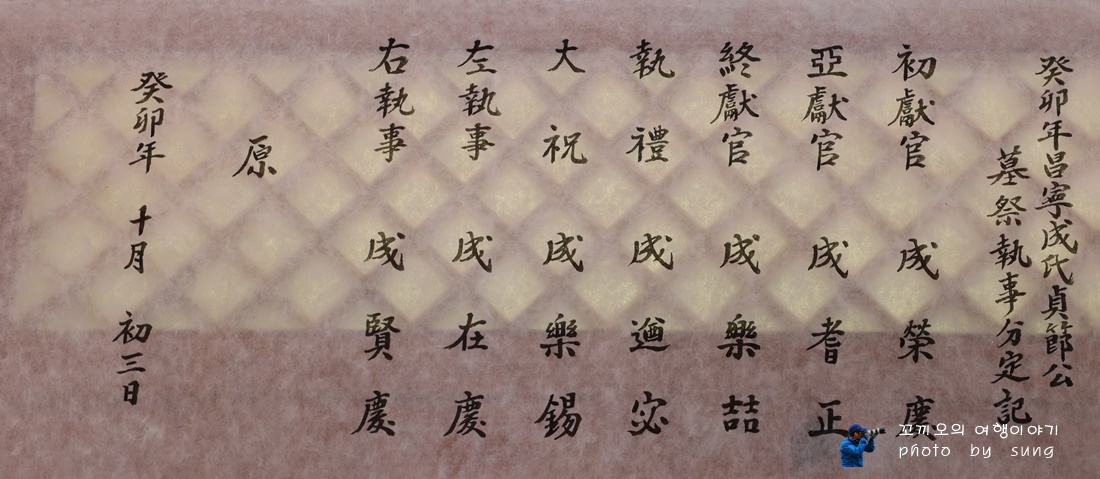 癸卯年昌寧成氏貞節公
墓祭執事分定記
初獻官 成 榮慶
亞獻官 成 耆正
終獻官 成 樂喆
執禮 成 逎宓
大祝 成 樂錫
左執事 成 在慶
右執事 成 賢慶
原
癸卯年 十月 初三日
꼬끼오의 여행이야기
photo by sung